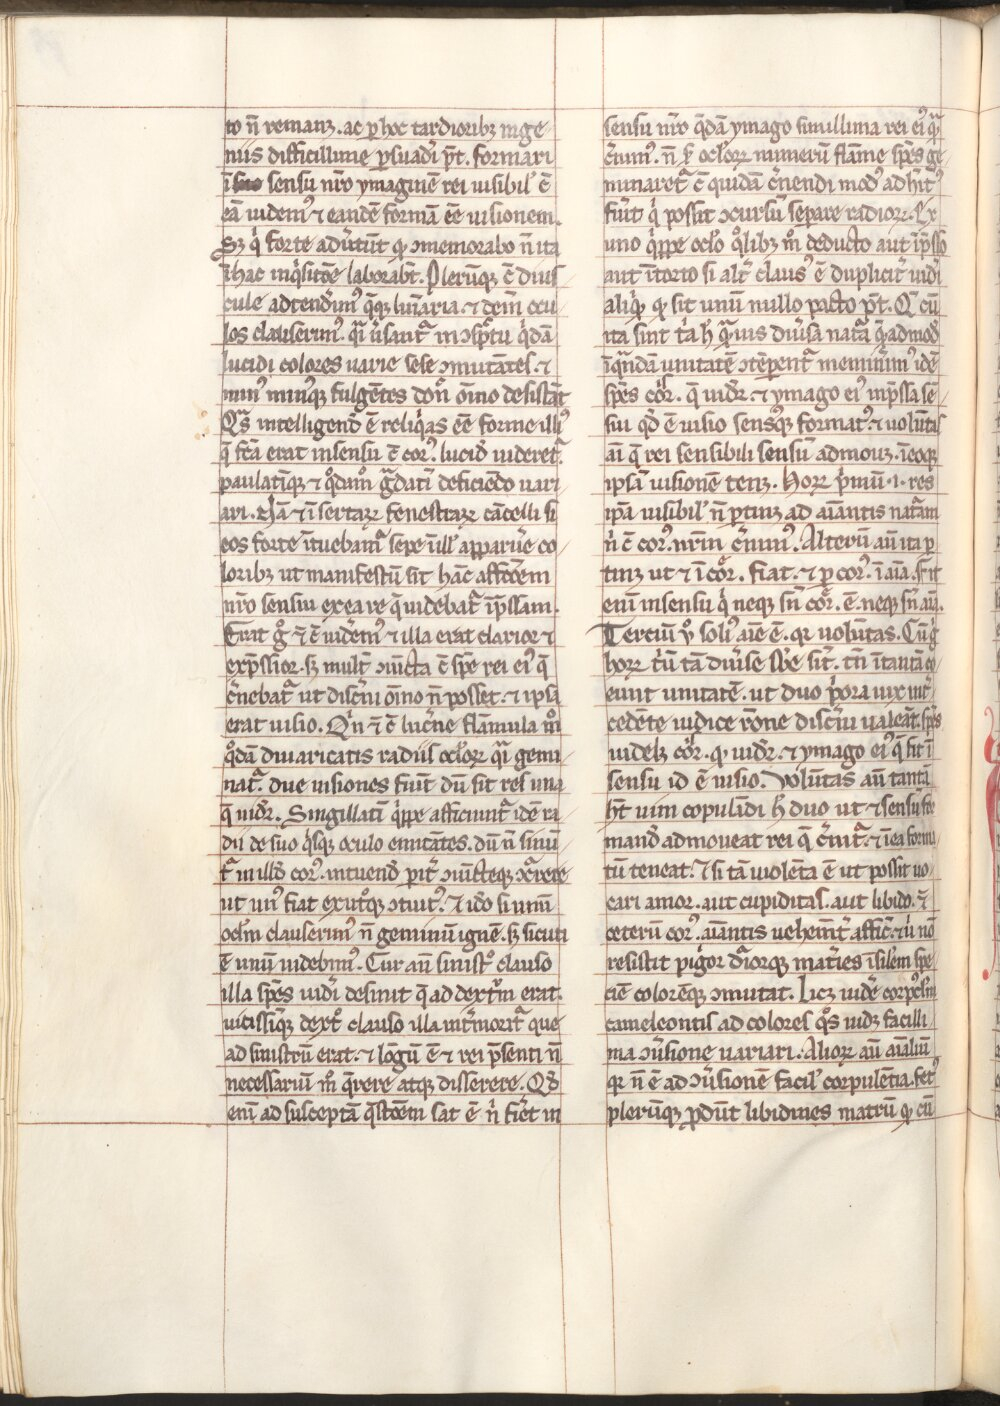 to n̄ remanꝫ. ac ꝑ hoc tardioribꝫ inge
niis difficillime ꝑsuadi᷎ p̄t. formari
ī sensu nr̄o ymaginē rei uisibil᷎ c̄
eā uidemꝰ ⁊ eandē formā ee᷎ uisionem.
Sꝫ qͥ forte adu᷎tūt qͥ ꝯmemorabo n̄ ita
ī hac inqͥsitōe laborabt᷎. Plerūqꝫ c̄ dius
cule adtendimꝰ qͣ̄qꝫ luīaria. ⁊ dein᷎ ocu
los clauserimꝰ. qͣi u᷎sant᷎ in ꝯspc̄tu qͦdā
lucidi colores uarie sese ꝯmutātes. ⁊
minꝰ minꝰqꝫ fulgētes don᷎ oīno desistāt
Qͣs intelligend᷎ ē reliqͥas ee᷎ forme illiꝰ
q̄ fc̄a erat in sensu c̄ corꝰ. lucid᷎ uideret᷎.
paulatīqꝫ ⁊ qͦdam᷎ gͣdati᷎ deficiēdo uari
ari. Nā ⁊ īsertaꝝ fenestraꝝ cācelli si
eos forte ītuebamͬ sepe īill᷎ apparuēr᷎ co
loribꝫ ut manifestū sit hāc affc̄cōem
nr̄o sensui ex ea re q̄ uidebatͬ īp̄ssam.
Erat gͦ ⁊ c̄ uidēmꝰ ⁊ illa erat clarior ⁊
exp̄ssior. sꝫ mult᷎ ꝯiūcta c̄ spē rei eiꝰ q̄
c᷎nebatͬ ut disc᷎ni oīno n̄ posset. ⁊ ipsā
erat uisio. Qͥn ⁊ c̄ luc᷎ne flāmula mͦ
qͦdā diuaricatis radiis ocl᷎oꝝ qͣi gemi
natͬ. due uisiones fiūt dū sit res una
q̄ uidr᷎. Singillati᷎ qͥppe afficiuntͬ idē ra
dii de suo qͥsqꝫ oculo emicātes. dū n̄ sinū
tͬ in illd᷎ corꝰ. intuend᷎ parit᷎ ꝯiūcteqꝫ ꝯcurrere
ut unꝰ fiat ex utͦqꝫ ꝯtuitꝰ. ⁊ iđo si unū
ocl᷎m clauserimꝰ n̄ geminū ignē. sꝫ sicuti
ē unū uidebimꝰ. Cur aū sinistͦ clauso
illa spēs uidi᷎ desinit q̄ ad dextrm᷎ erat.
uicissīqꝫ dextͦ clauso illa int᷎moritͬ que
ad sinistrū erat. ⁊ lōgū ē ⁊ rei p̄senti n̄
necessariū mͦ q̄rere atqꝫ disserere. Qd᷎
eni᷎ ad susceptā qͣ̄stōem sat ē nͥ fier᷎et in
sensu nr̄o qͣ̄dā ymago simillima rei eiꝰ qͣ̄
c᷎nimꝰ. n̄ ẜ ocl᷎oꝝ numerū flāme spēs ge
minaretͬ c̄ quidā c᷎nendi modꝰ adhitꝰ
fuit᷎ qͥ possit ꝯcursū separe radioꝝ. Ex
uno qͥppe oclo᷎ qͦlibꝫ mͦ deducto aut īp̄sso
aut ītorto si alt᷎ clausꝰ ē duplicit᷎ uidi᷎
aliqͥ qͥ sit unū nullo pacto p̄t. Qͣ cū
ita sint t᷎a h᷎ qͣ̄uis diu᷎sa natͣ̄a qͣ̄admodͦ
īqͣndā unitatē ꝯtēꝑentͬ meminerimꝰ idē
spēs cor᷎. q̄ uidr᷎. ⁊ ymago eiꝰ inp̄ssa sē
sui qd᷎ ē uisio sensꝰqꝫ formatꝰ. ⁊ uolūtas
ai᷎ q̄ rei sensibili sensū admouꝫ. īeoqꝫ
ipsā uisionē tenꝫ. Hoꝝ p͛mū .i. res
ipā uisibil᷎ n̄ ꝑtinꝫ ad aīantis natͣ̄am
nͥ c̄ corꝰ. nr̄m c᷎nimꝰ. Alterū aū ita ꝑ
tinꝫ ut ⁊ ī cor᷎. fiat. ⁊ ꝑ corꝰ. ī aīa. Fit
enī in sensu qͥ neqꝫ sn̄ cor᷎. ē. neqꝫ sn̄ aīa.
Tertiū uͦ soliꝰ aīe ē. qr uolūtas. Cū gͦ
hoꝝ t᷎iū tā diu᷎se sb᷎e sīt. tn̄ ī tantā co
eunt unitatē. ut duo p͛ora uix int᷎
cedēte iudice rōne disc᷎ni ualeāt. spēs
uidelꝫ cor᷎. qͥ uidr᷎. ⁊ ymago eiꝰ q̄ fit ī
sensu id ē uisio. Volūtas aū tantā
ht᷎ uim copulādi h᷎ duo ut ⁊ sensū for
mand᷎ admoueat rei q̄ c᷎nitͬ. ⁊ ī ea forma
tū teneat. ⁊ si tā uiolēta ē ut possit uo
cari amor. aut cupiditas. aut libido. ⁊
ceterū corꝰ. aīantis uehemēt᷎ affic᷎. ⁊ u᷎ nō
resistit pigͥor durͥorqꝫ mat᷎ies ī sil᷎em spe
ciē colorēqꝫ ꝯmutat. Licꝫ uide᷎ corpuscl᷎m
cameleontis ad colores qͦs uidꝫ facilli
ma ꝯu᷎sione uariari. Alioꝝ aū aīaliū
qr n̄ ē ad ꝯu᷎sionē facil᷎ corpulētia. fetꝰ
plerūqꝫ ꝓdūt libidines matrū qͥ cū